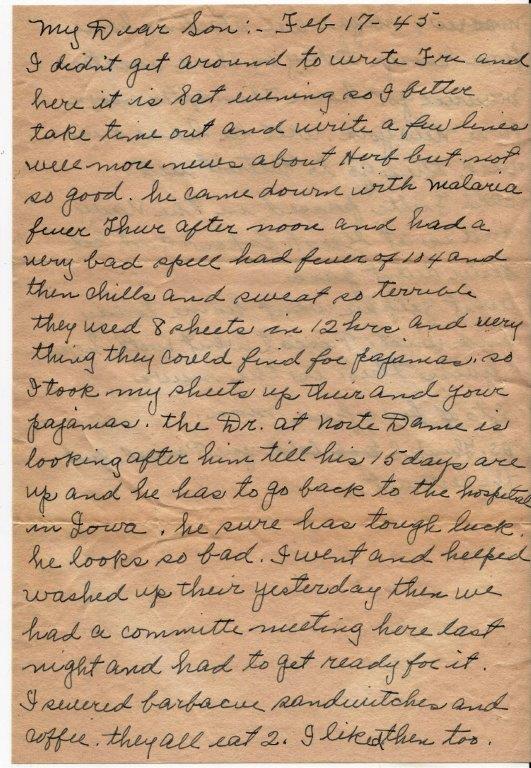 My Dear Son:- Feb 17-45.
I didnt get around to write Fri and
here it is Sat evening so I better
take time out and write a few lines
well more news about Herb but not
so good. he came down with malaria
fever Thur after noon and had a
very bad spell had fever of 104 and
then chills and sweat so terrible
they used 8 sheets in 12 hrs and very
thing they could find for pajamas. so
I took my sheets up their and your
pajamas. the Dr. at Norte Dame is
looking after him till his 15 days are
up and he has to go back to the hospital
in Iowa. he sure has tough luck.
he looks so bad. I went and helped
washed up their yesterday then we
had a committe meeting here last
night and had to get ready for it.
I severed barbacue sandwitches and
coffee. they all eat 2. I liked then too.